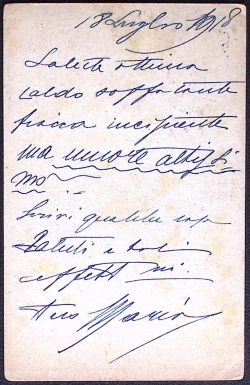 18 Luglio 1918
Salute ottima
caldo soffocante
fisica incipiente
ma umore altissi
mo
Scrivi qualche cosa
Saluti e baci
affett mi.
tuo Mario